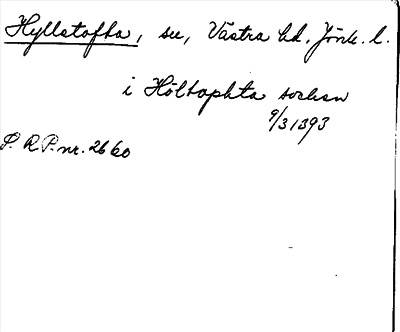 Hyllstofta, sn, Västra hd, Jönk. l.
i Höltophta sochen
9/3 1393
S. R. P. nr. 2660